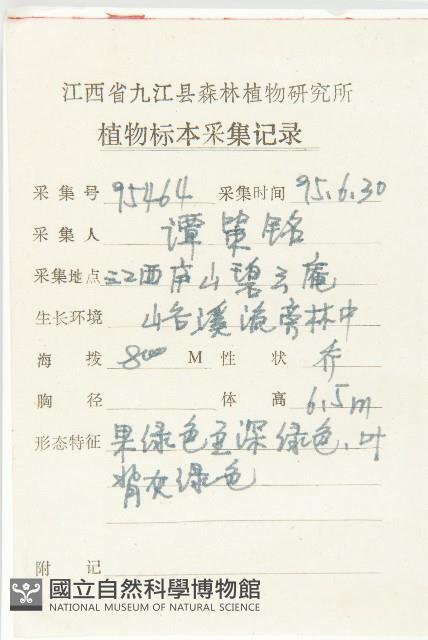 江西省九江县森林植物研究所
植物标本采集记录
采集号 95464 采集时间 95.6.30
采集人 谭策铭
采集地点 江西庐山碧云庵
生长环境 山谷溪流旁林中
海拨 800 M 性状 乔
胸径 体高 6.5m
形态特征 果绿色至深绿色,叶
背灰绿色
附记
國立自然科學博物館
NATIONAL MUSEUM OF NATURAL SCIENCE